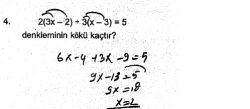 4. 2(3x – 2) + 3(x – 3) = 5
denkleminin kökü kaçtır?
6x-4 +3x -9=5
9x-13=5
9x =18
x=2